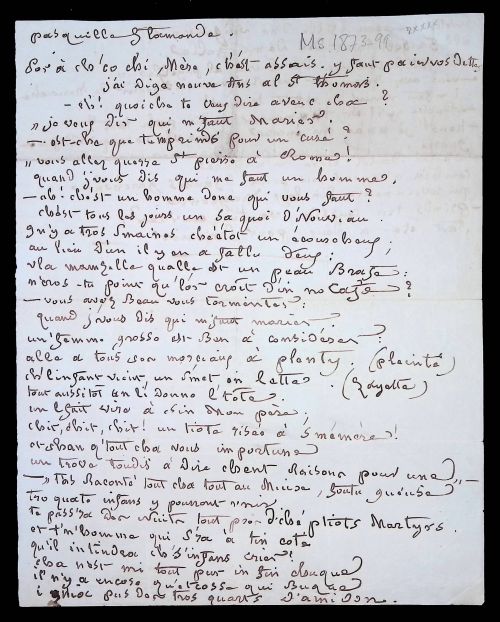 pasquille flamande.
Ms 1873-99
Por à ch'co chi, Mère, ch'est assais. y faut païer vos dette
j'ai diza neuve ans al St thomas.
- eh! quoi che te veus dire avenc cha ?
" je vous dis qui m'faut Marier.
- est-che que te m'prinds pour un 'curé ?
" vous allez querre St pierre à Rome!
quand j'vous dis qui me faut un homme.
- ah! ché'st un homme donc qui vous faut ?
chest tous les jours un sa quoi d'Nouviau.
Y n'y a tros s'maines ch'étôt un
au lieu d'un il y en a fallu deux;
v'la mamzelle qu'alle est un peau Brase:
n'eros-tu point qu'los croit d'in no Café ?
- vous avez Beau vous tormenter:
quand j'vous dis qui m'faut marier
un' femme grosse est Ben à considérer:
alle a tous ses morceaux à plenty. (pleinté)
ch'l'infant vient un s'met en lette (layette)
tout aussitôt un li donne l'tete.
un l'fait vire à sin Mon père,
chit, chit, chit! un tiote risée à s'mémère!
et quan q'tout cha vous importune
un trove toudis à Dire chent Raisons pour une „ —
- " T'as Raconté tout cha tout au Mieuse, foutu gueuse
tro quate infans y pourront v'nir
te pass'ra Des Nuits tout près D'ches p'tiots Martyrs
et t'n'homme qui s'ra à tin coté
qu'il intindra ch's infans crier!
cha n'est mi tout pur in sin
il n'y a encore qu'etcosse qui Buque
i pas Des tros quarts d'amidon.